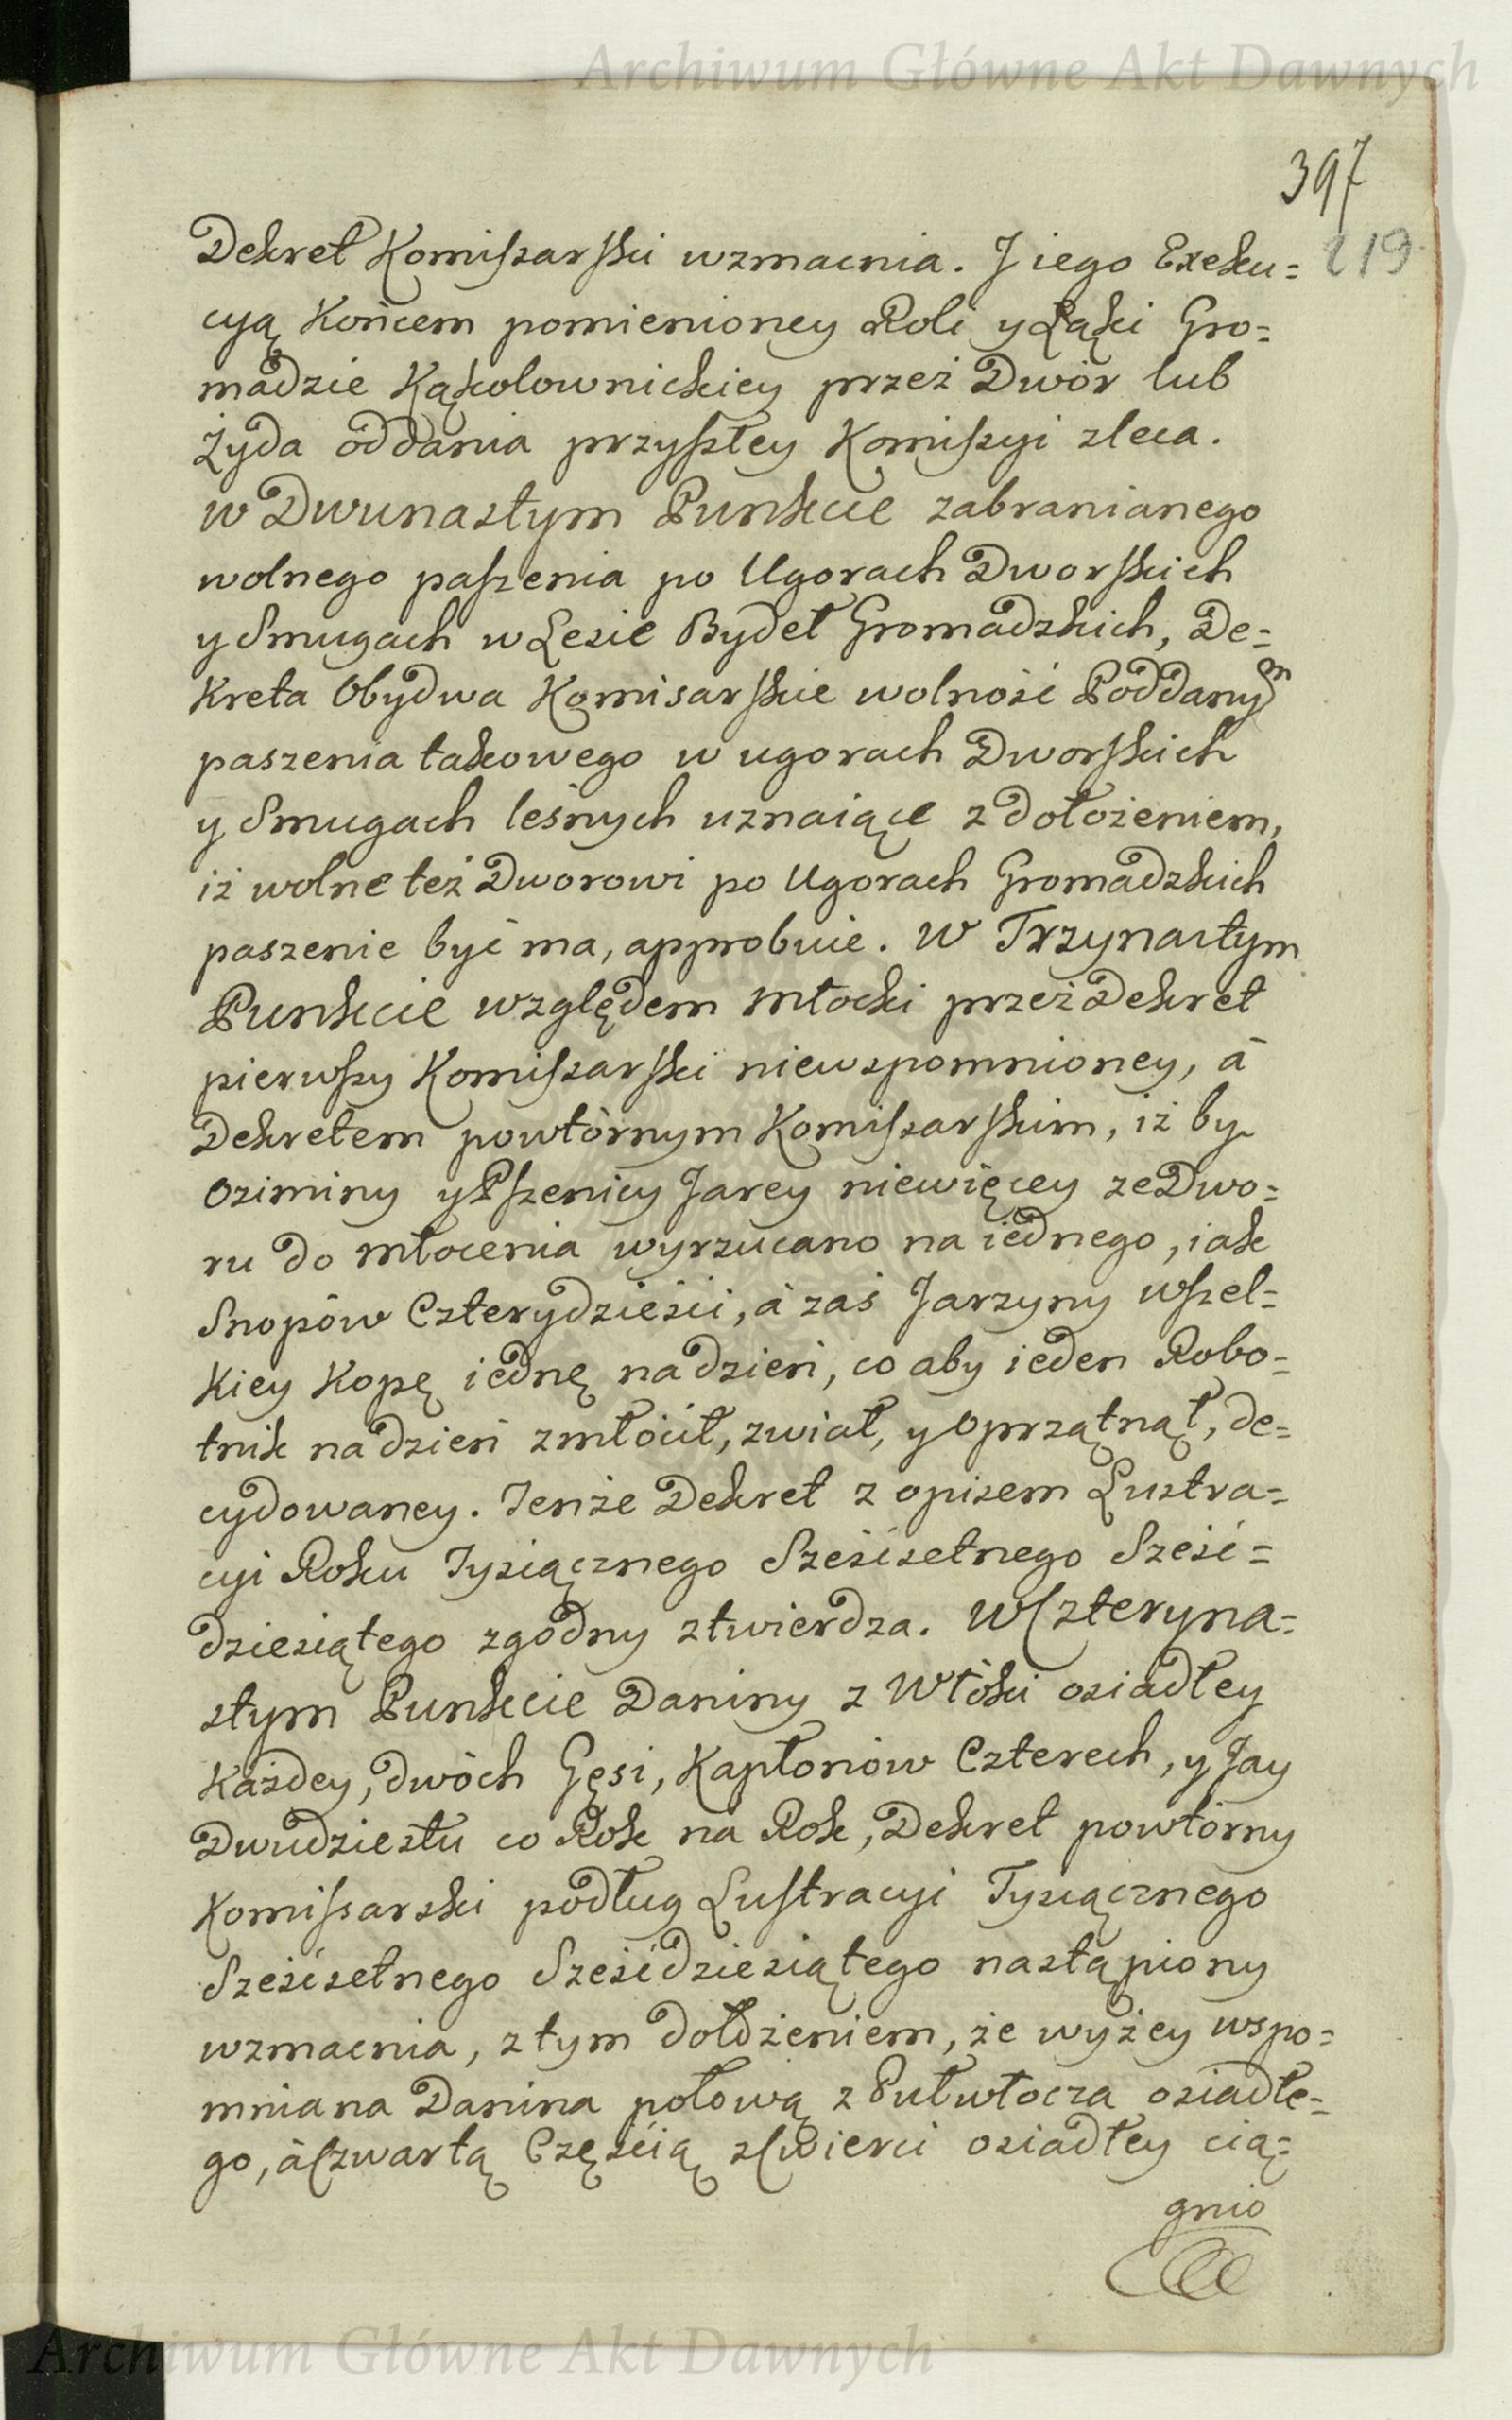 Archiwum Główne Akt Dawnych
397
219
Dekret Komiſsarſki wzmacnia. J iego Exeku=
cyą Końcem pomienioney Roli y Łąki Gro=
madzie Kąkolownickiey przez Dwór lub
Żyda oddania przyſzłey Komiſsyi zleca.
w Dwunastym Punkcie zabranianego
wolnego paſzenia po Ugorach Dworſkich
y Smugach w Lesie Bydeł Gromadzkich, De=
kreta Obydwa Komisarſkie wolność Poddanym
paszenia takowego w ugorach Dworſkich
y Smugach leśnych uznaiące z dołożeniem,
iż wolne też Dworowi po Ugorach Gromadzkich
paszenie być ma, approbuie. W Trzynastym
Punkcie względem młocki przez Dekret
pierwſzy Komiſsarſki niewspomnioney, á
Dekretem powtórnym Komiſsarſkim, iż by
Oziminy y Pſzenicy Jarey niewięcey ze Dwo=
ru do młocenia wyrzucano na iednego, iak
Snopów Czterydzieści, á zaś Jarzyny wſzel=
kiey Kopę iednę na dzień, co aby ieden Robo=
tnik na dzień zmłócił, zwiał, y oprzątnął, de=
cydowaney. Tenże Dekret z opisem Lustra=
cyi Roku Tysiącznego Sześćsetnego Sześć=
dziesiątego zgodny stwierdza. W Czteryna=
stym Punkcie Daniny z Włóki osiadłey
każdey, dwóch Gęsi, Kapłonów Czterech, y Jay
Dwudziestu co Rok na Rok, Dekret powtórny
Komiſsarski podług Luſtracyi Tysiącznego
Sześćsetnego Sześćdziesiątego nastąpiony
wzmacnia, z tym dołożeniem, że wyżey wspo=
mniana Danina połową z Pułwłocza osiadłe=
go, á Czwartą Częścią z Cwierci osiadłey cią=
gnio
Archiwum Główne Akt Dawnych